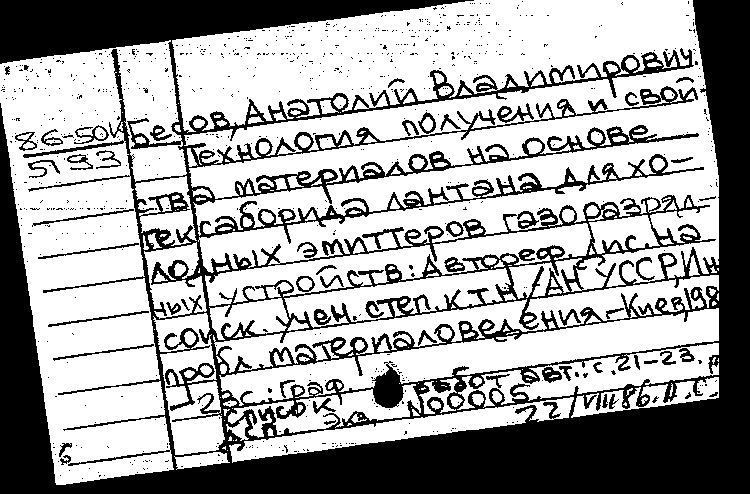 86-50К
5193
Бесов, Анатолий Владимирович.
Технология получения и свой-
ства материалов на основе
гексаборида лантана для хо-
лодных эмиттеров газоразряд-
ных устройств: Автореф. дис. на
соиск. учен. степ. к.т.н. / АН УССР, Ин
пробл. материаловедения.-Киев, 198
23с.: граф.
Список работ авт.: с. 21-23.
ДСП. Экз. N00005.
22/VIII 86. Д.С.
б